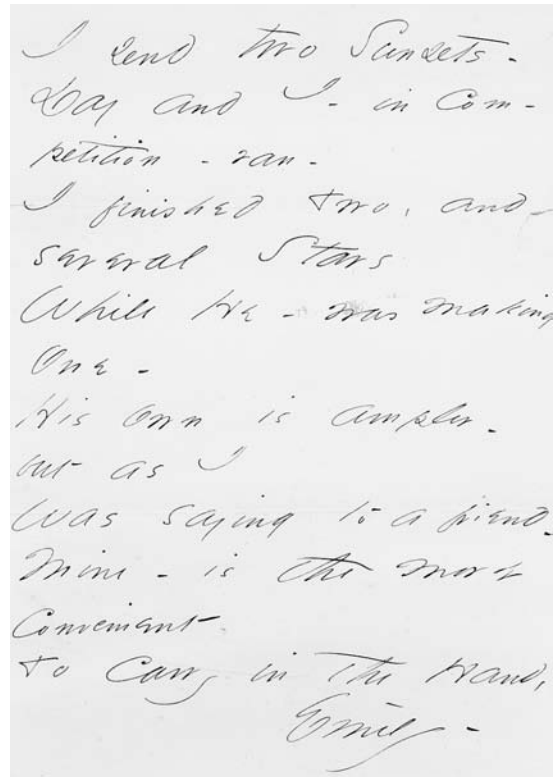 I send two Sunsets -
Day and I - in Com-
petition - ran -
I finished two, and
several Stars
While He - was making
One -
His Own is ampler -
but as I
Was saying to a friend -
Mine - is the more
Convenient
To Carry in the Hand,
Emily -